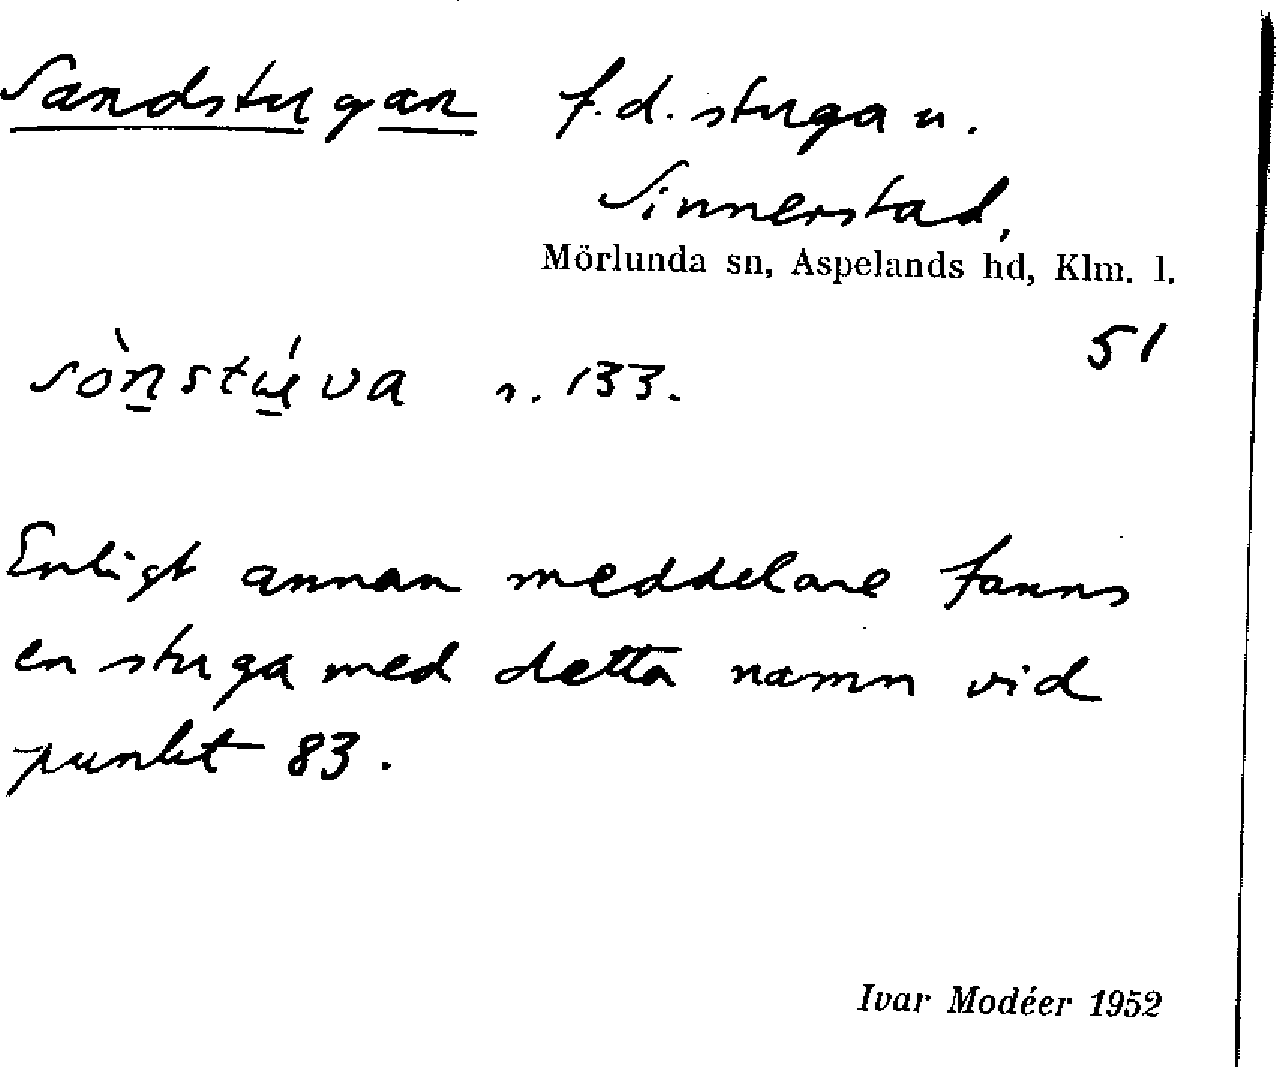 Sandstugan f.d. stuga u.
Sinnerstad,
Mörlunda sn, Aspelands hd, Klm. l.
51
133.
Enligt annan meddelare fanns
en stuga med detta namn vid
punkt 83.
Ivar Modéer 1952